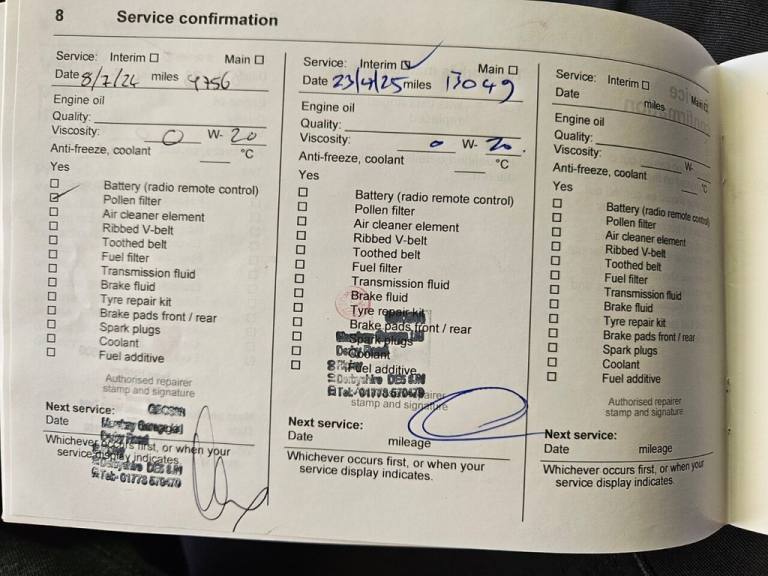 8 Service confirmation
Service: Interim Main
Date 8/7/24 miles 9756
Engine oil
Quality:
Viscosity: 0 W- 20
Anti-freeze, coolant °C
Yes
Battery (radio remote control)
Pollen filter
Air cleaner element
Ribbed V-belt
Toothed belt
Fuel filter
Transmission fluid
Brake fluid
Tyre repair kit
Brake pads front / rear
Spark plugs
Coolant
Fuel additive
Authorised repairer
stamp and signature
Next service:
Date
Whichever occurs first, or when your
service display indicates.
Derbyshire DE5
Tel: 01773 570470
Service: Interim Main
Date 23/4/25 miles 13049
Engine oil
Quality:
Viscosity: 0 W- 20.
Anti-freeze, coolant °C
Yes
Battery (radio remote control)
Pollen filter
Air cleaner element
Ribbed V-belt
Toothed belt
Fuel filter
Transmission fluid
Brake fluid
Tyre repair kit
Brake pads front / rear
Spark plugs
Coolant
Fuel additive
Derby Road
Derbyshire DE5
Tel: 01773 570470
stamp and signature
Next service:
Date mileage
Whichever occurs first, or when your
service display indicates.
Service: Interim Main
Date miles
Engine oil
Quality:
Viscosity: W-
Anti-freeze, coolant °C
Yes
Battery (radio remote control)
Pollen filter
Air cleaner element
Ribbed V-belt
Toothed belt
Fuel filter
Transmission fluid
Brake fluid
Tyre repair kit
Brake pads front / rear
Spark plugs
Coolant
Fuel additive
Authorised repairer
stamp and signature
Next service:
Date mileage
Whichever occurs first, or when your
service display indicates.